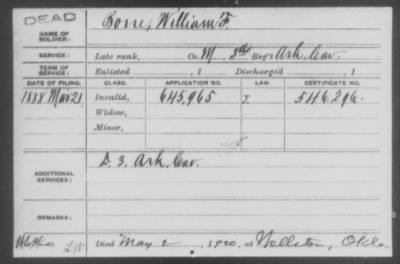 DEAD
NAME OF SOLDIER: Bone, William F.
SERVICE: Late rank, Co. M, 3rd Reg't Ark. Cav.
TERM OF SERVICE: Enlisted , 1 Discharged , 1
DATE OF FILING. CLASS. APPLICATION NO. LAW. CERTIFICATE NO.
1888 Mar 21 Invalid, 645,965 546,296.
Widow,
Minor,
ADDITIONAL SERVICES: D. 3. Ark. Cav.
REMARKS:
Died May 2, 1920, at Wellston, Okla